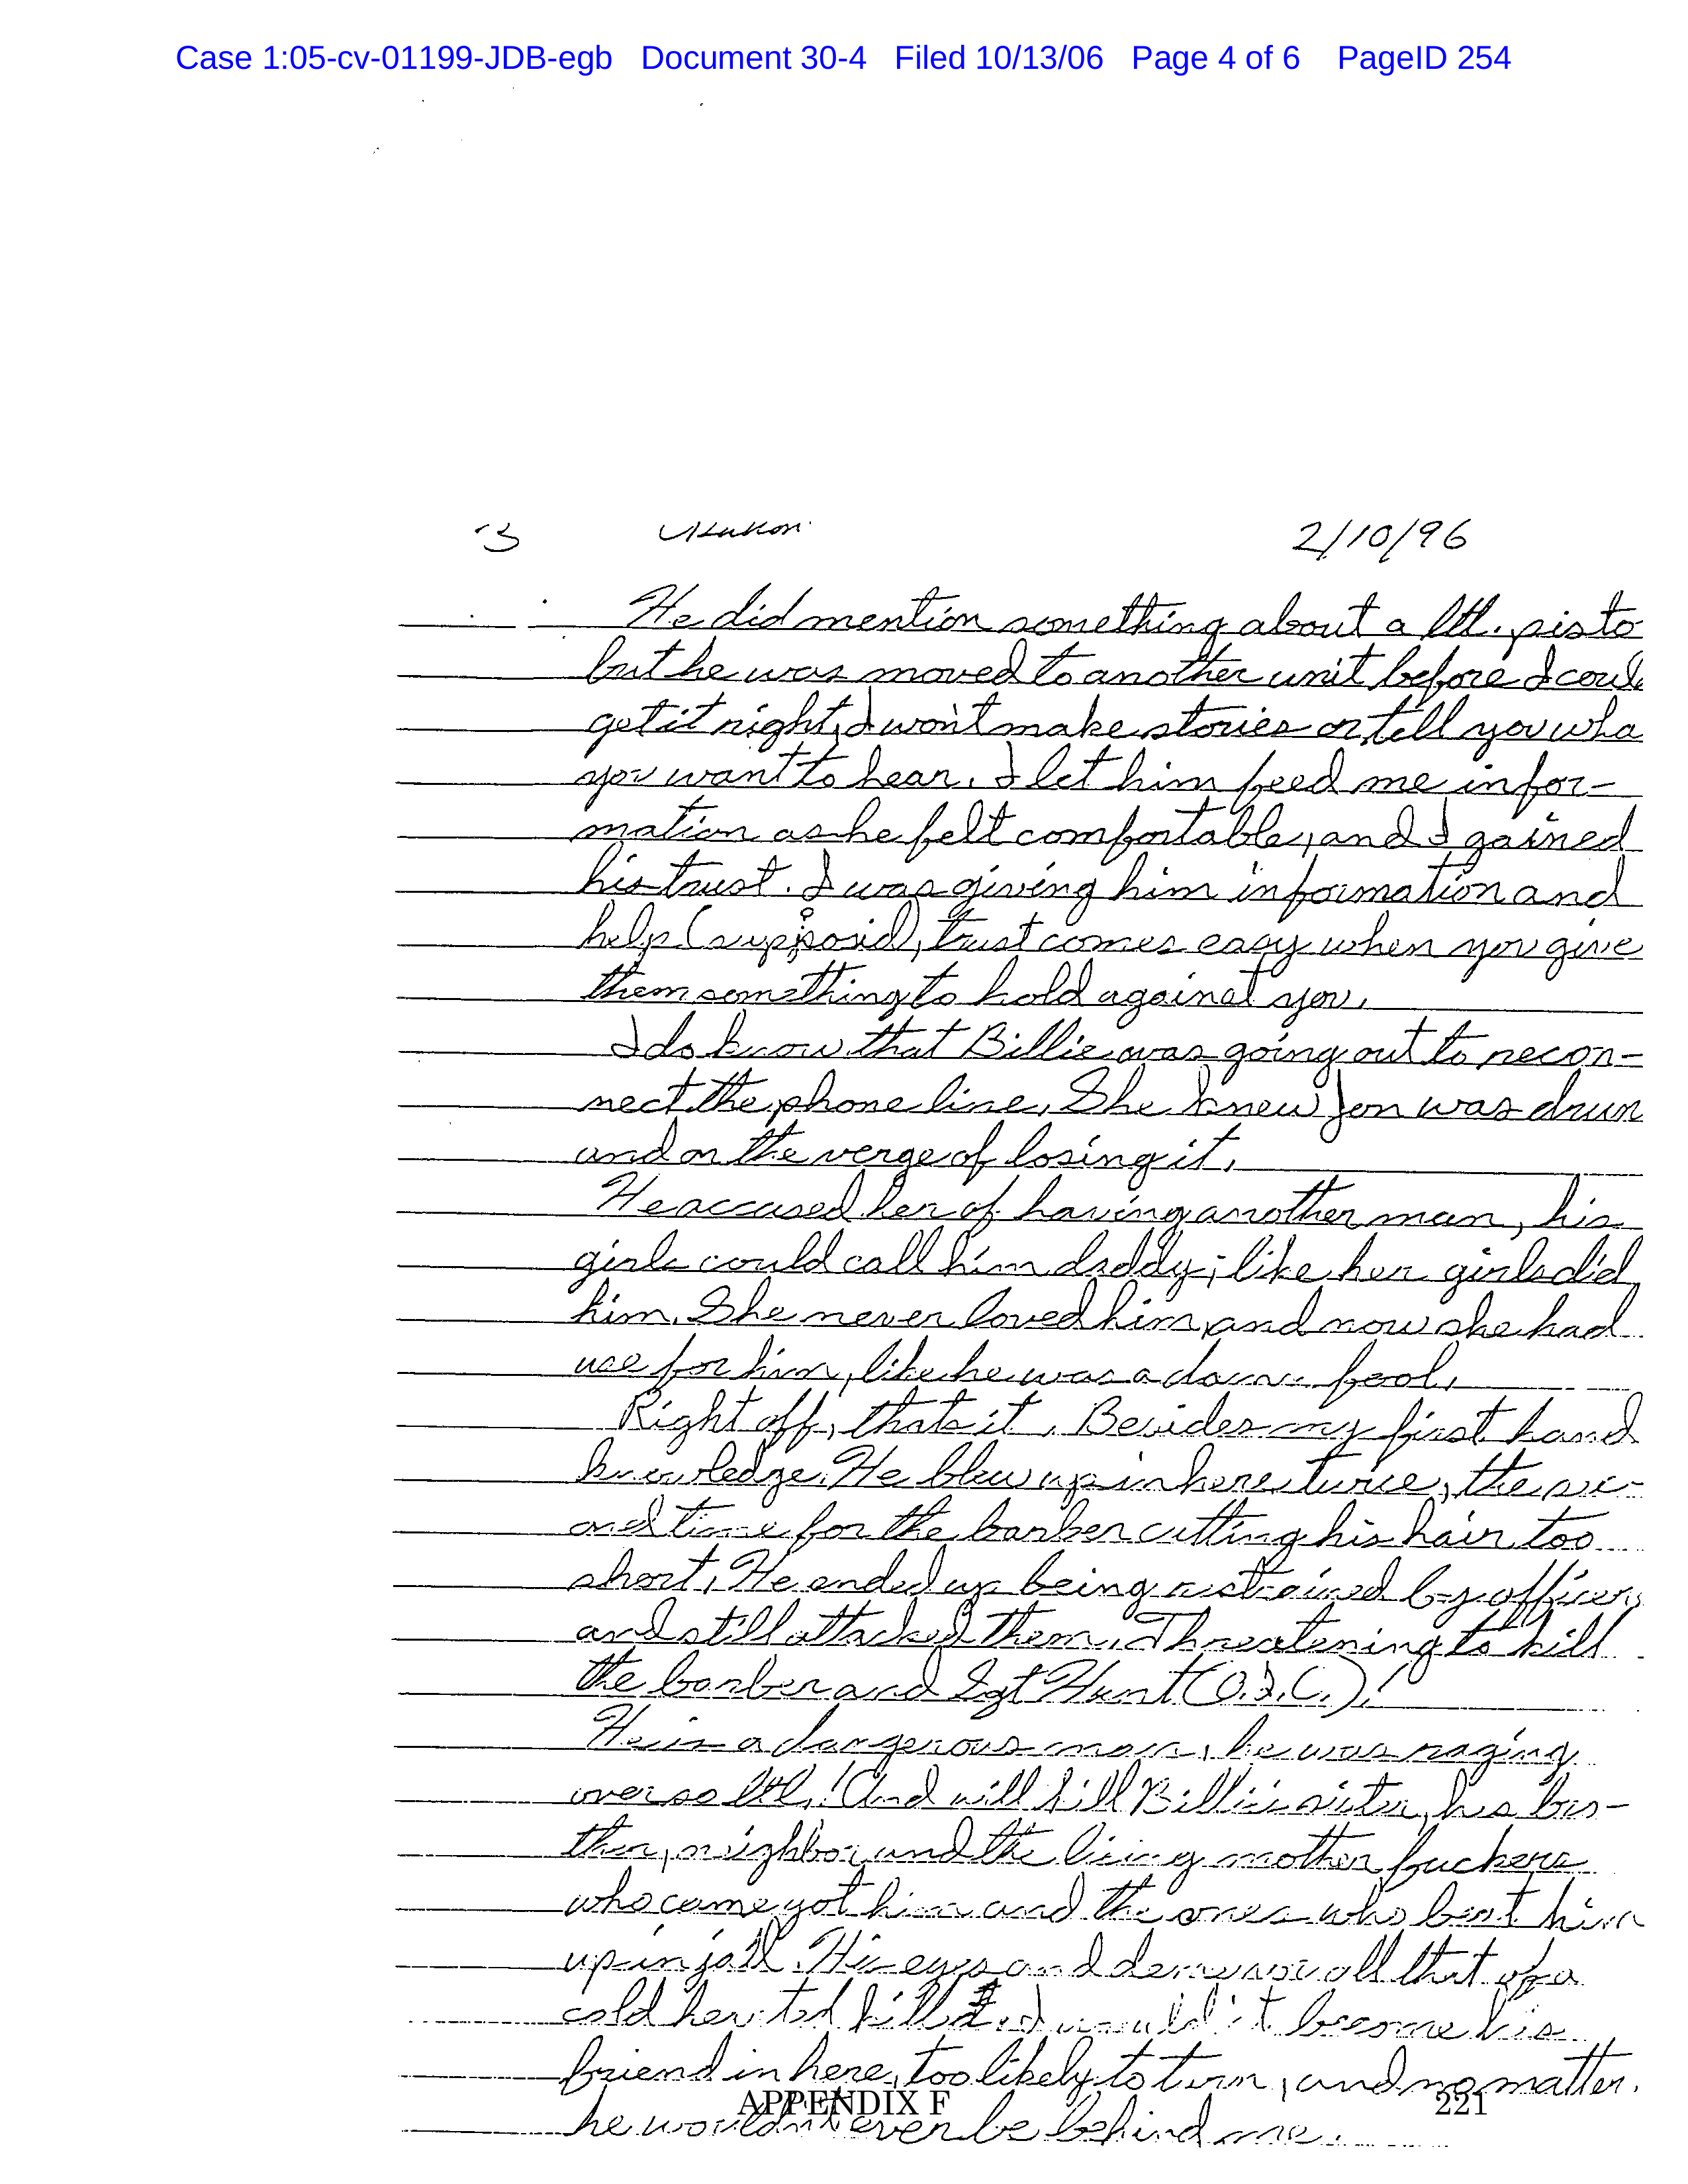 Case 1:05-cv-01199-JDB-egb Document 30-4 Filed 10/13/06 Page 4 of 6 PageID 254
3 2/10/96
He did mention something about a ltl. pisto
but he was moved to another unit before I coul
get it right, I won't make stories or tell you wha
you want to hear. I let him feed me infor-
mation as he felt comfortable, and I gained
his trust. I was giving him information and
help (suppósid), trust comes easy when you give
them something to hold against you.
I do know that Billie was going out to recon-
nect the phone line. She knew Jon was drun
and on the verge of losing it.
He accused her of having another man, his
girls could call him daddy; like her girls did
him. She never loved him, and now she had
use for him, like he was a damn fool.
Right off, thats it. Besides my first hand
knowledge. He blew up in here twice, the sec-
ond time for the barber cutting his hair too
short. He ended up being restrained by officers
and still attacked them. Threatening to kill
the barber and Sgt Hunt (O.I.C.)!
He is a dangerous man, he was raging
over so ltl.! And will kill Billie's sister, his bro-
ther, neighbor and the lieing mother fuckers
who came got him and the ones who beat him
up in jail. His eyes and all that of a
cold herted become his
friend in here, too likely to turn, and no matter.
he wouldn't ever be behind me.
APPENDIX F 221